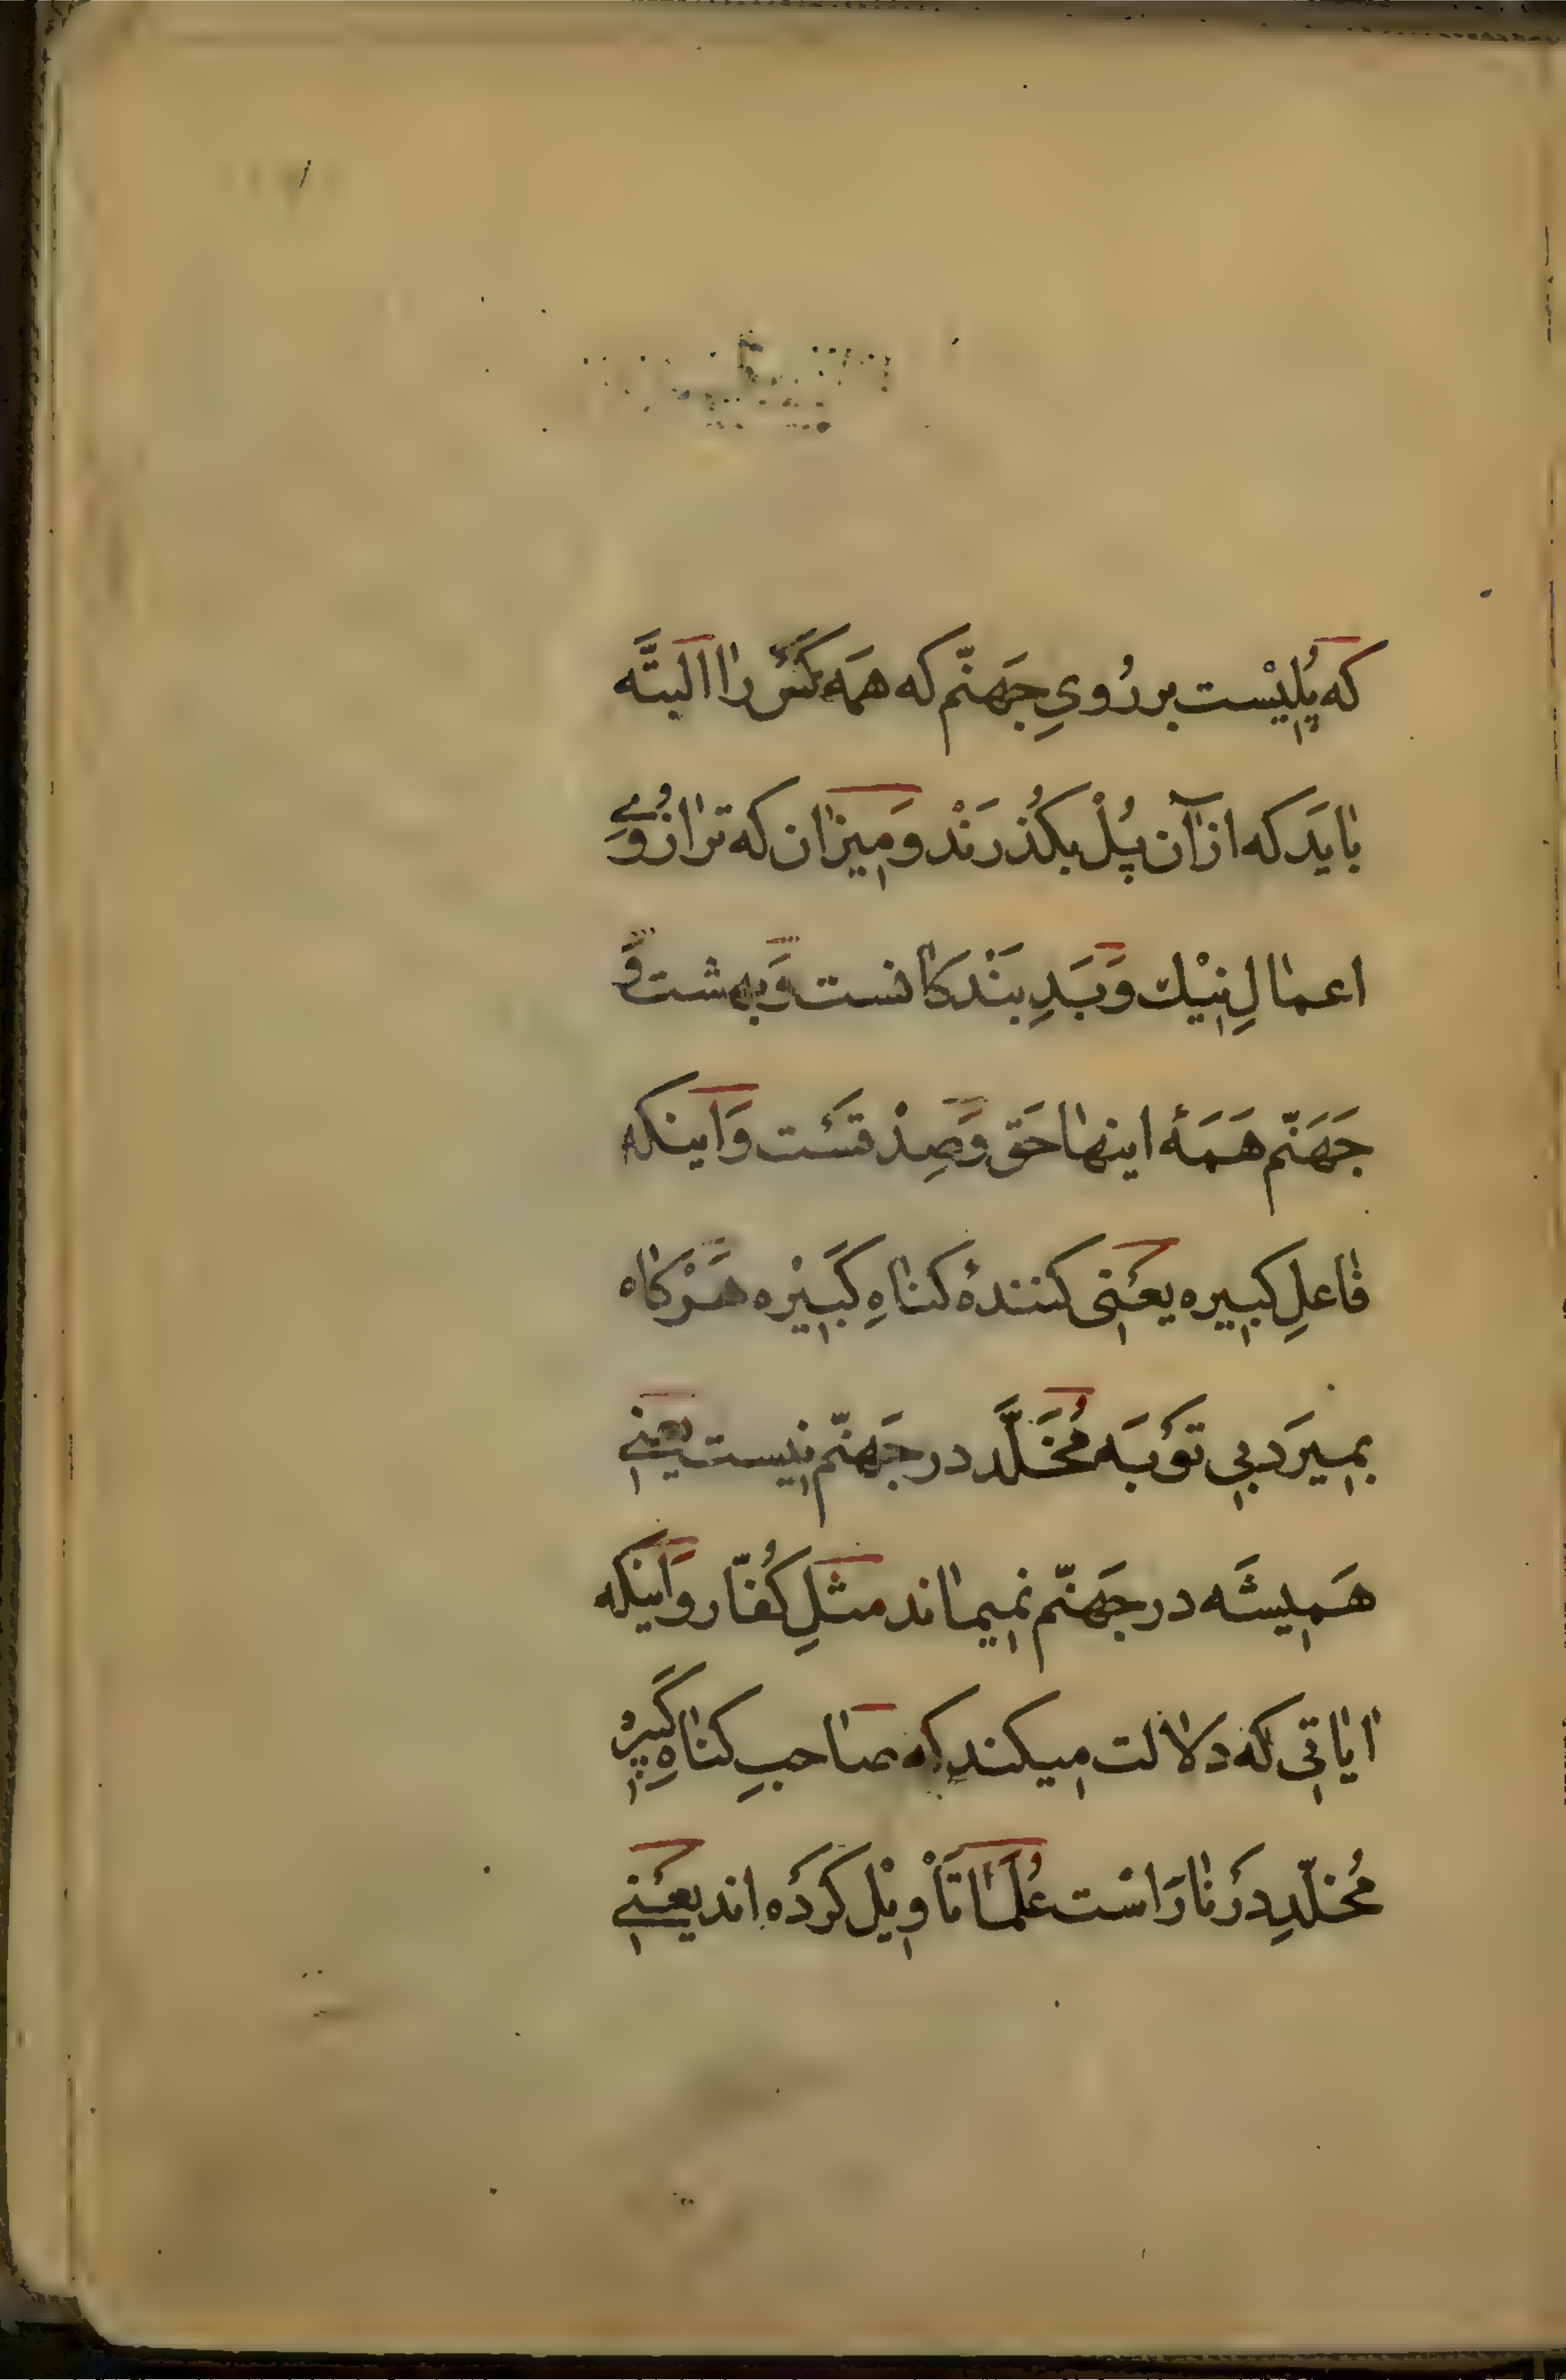 که پُلِیْست بر رُویِ جَهنّم که همَه کَسْ را البتَّه
بایَد که از آن پُلْ بکُذرَنْد وَمِیزان که ترازُویِ
اعمالِ نِیْك وَبَدِ بَنْدَکانست وَبهِشت وَ
جَهَنّم هَمَهٔ اینها حَق وَصِدْقَسْت وَاینکه
فاعلِ کبیره یعْنِی کنندهٔ کناهِ کَبِیْره هَرْکاه
بمِیرَد بِی تَوْبَه مُخَلَّد در جَهنّم نِیست یعْنِی
هَمِیشَه در جَهنّم نمِیماند مثلِ کُفّار وَاینکه
ایاتِی که دلالت مِیکند که صاحبِ کناهِ کَبِیْره
مُخلّدِ دَرْ نارَاسْت عُلَما تَأْوِیْل کَرْدَه اند یعْنِی